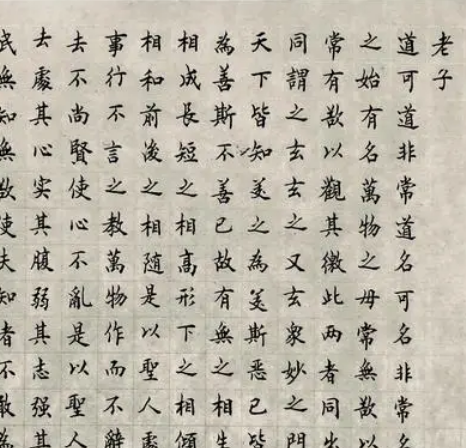 老子
道可道非常道名可名非常名
之始有名萬物之母常無欲以
常有欲以觀其徼此兩者同出
同謂之玄玄之又玄衆妙之門
天下皆知美之為美斯惡已皆
為善斯不善已故有無之相生
相成長短之相高形下之相傾
相和前後之相随是以聖人處
事行不言之教萬物作而不辭
去不尚賢使心不亂是以聖人
去處其心实其腹弱其志强其
民無知無欲使夫知者不敢為